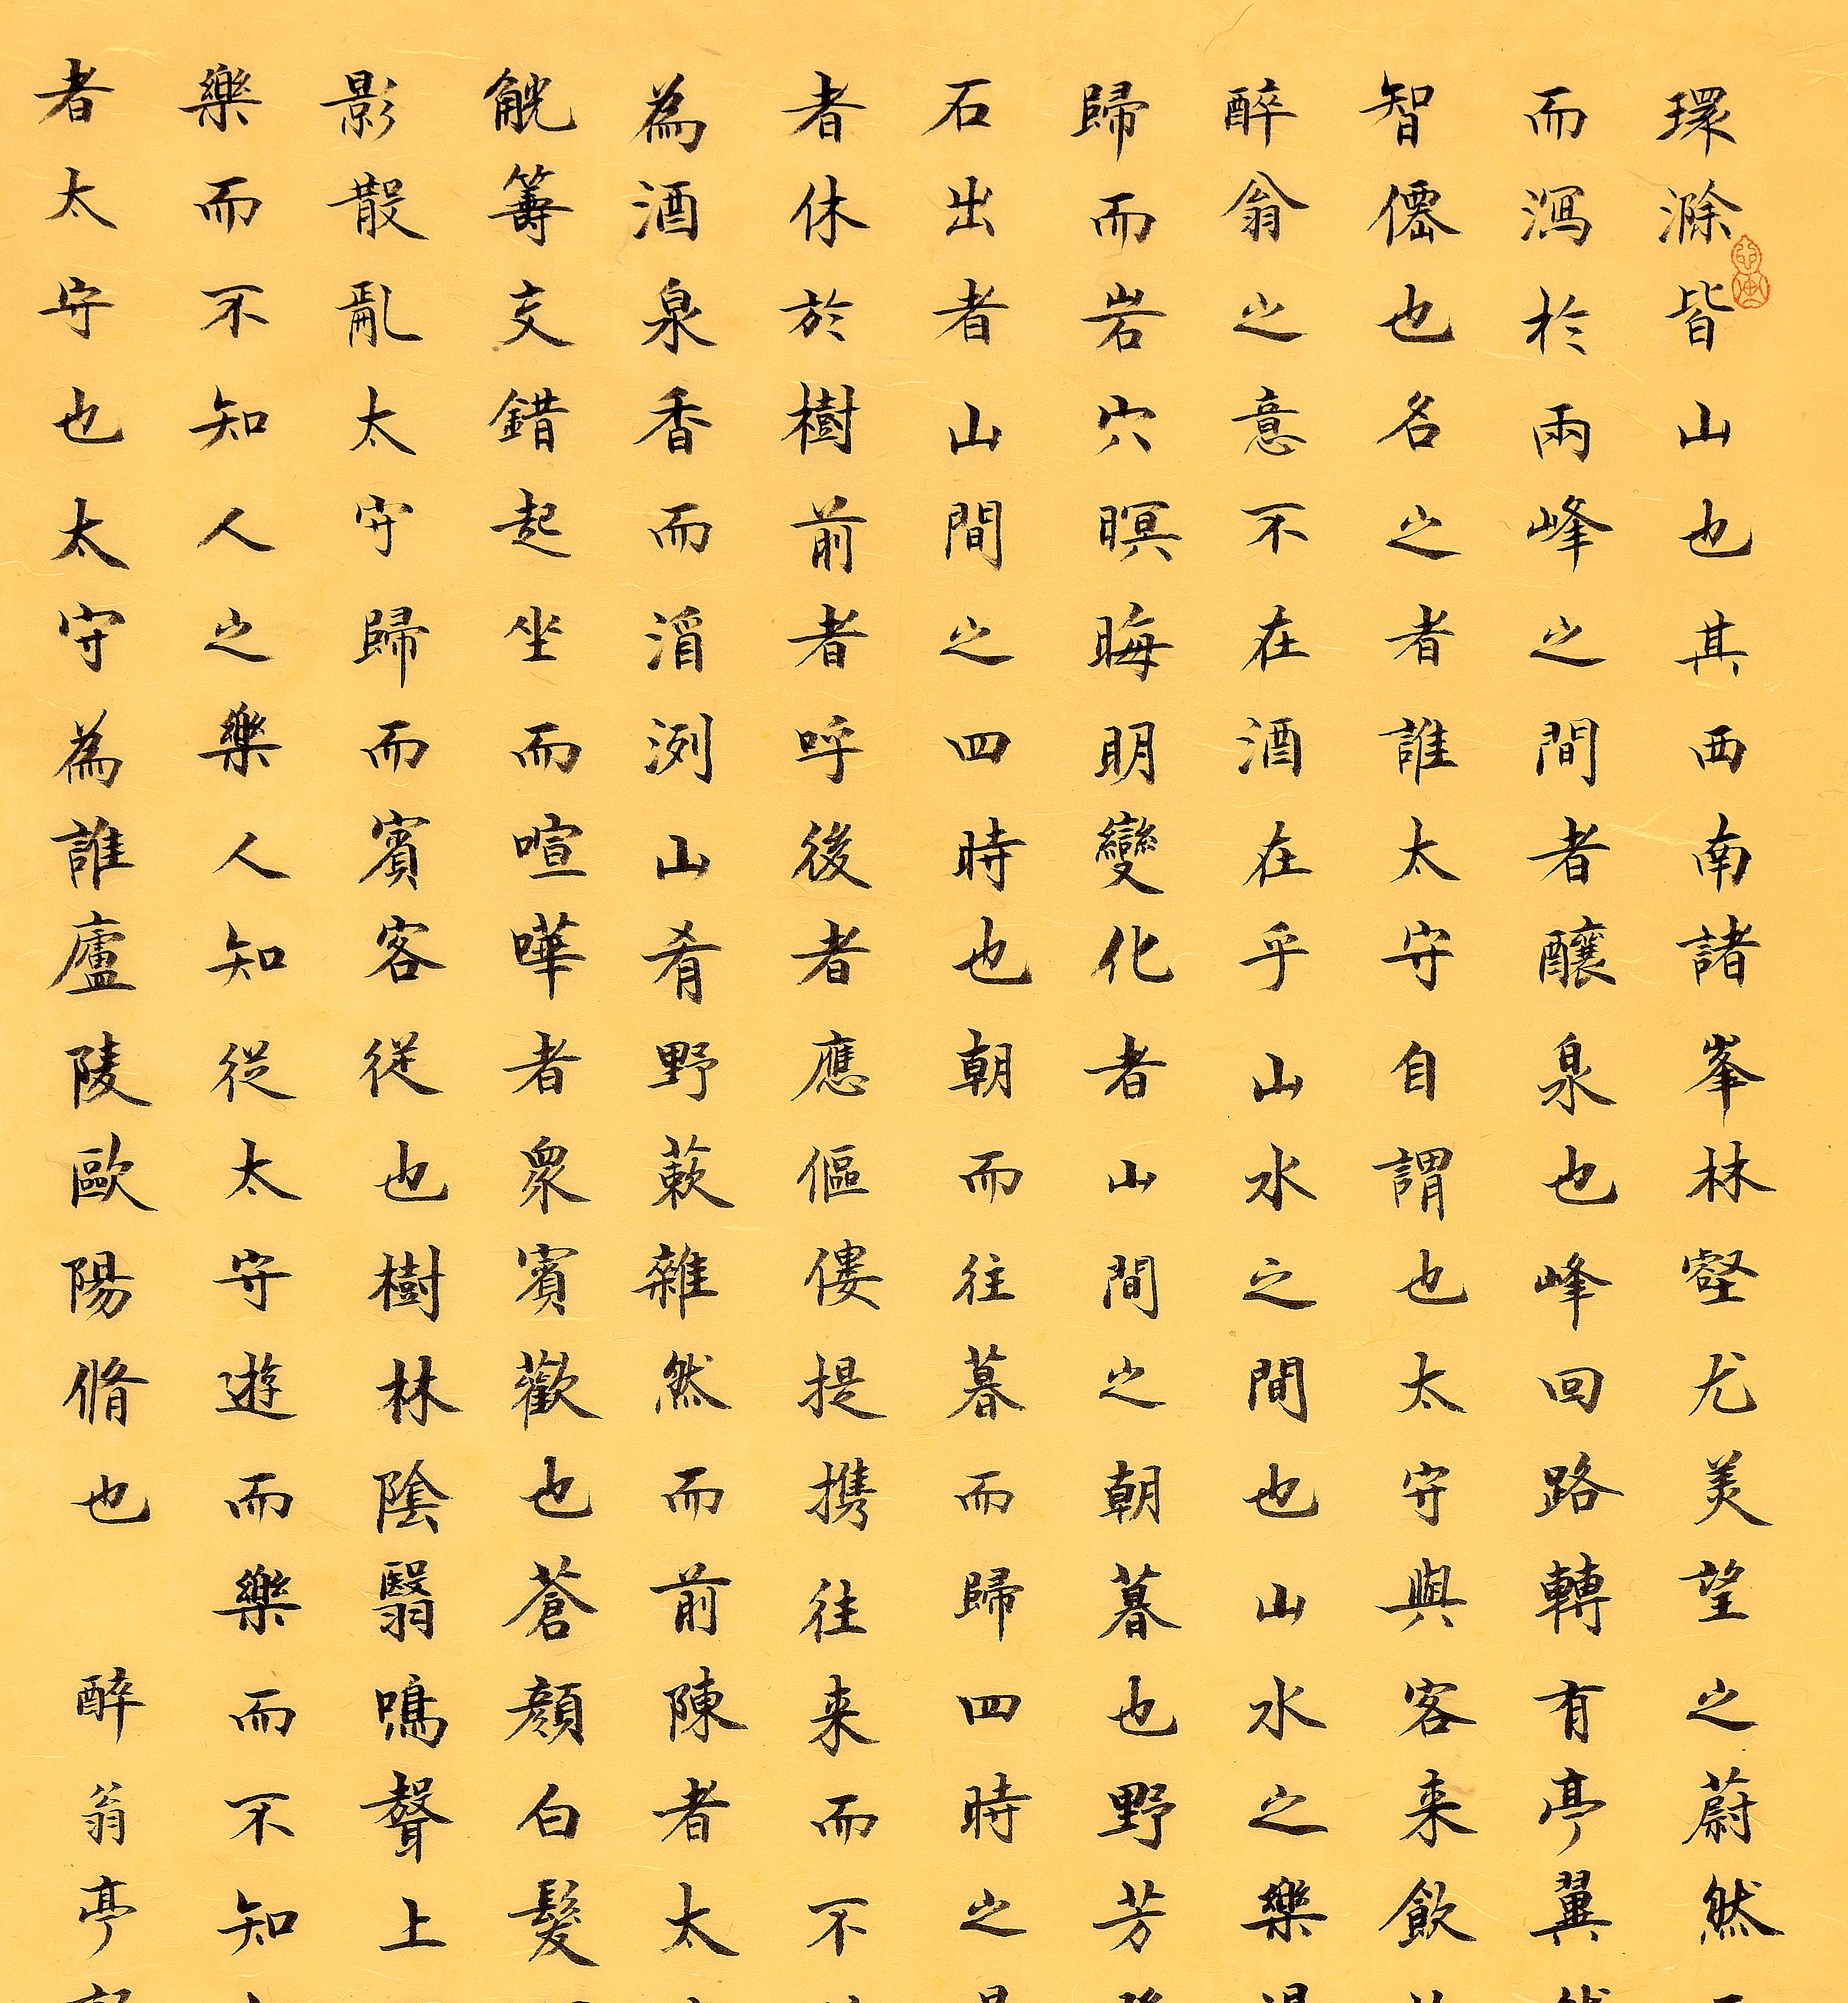 環滁皆山也其西南諸峯林壑尤美望之蔚然
而瀉於兩峰之間者釀泉也峰回路轉有亭翼
智僊也名之者誰太守自謂也太守與客来飲
醉翁之意不在酒在乎山水之間也山水之樂
歸而岩穴暝晦明變化者山間之朝暮也野芳
石出者山間之四時也朝而往暮而歸四時之
者休於樹前者呼後者應傴僂提携往来而不
為酒泉香而洌山肴野蔌雜然而前陳者太
觥籌交錯起坐而喧嘩者眾賓歡也蒼顏白髮
影散亂太守歸而賓客從也樹林陰翳鳴聲上
樂而不知人之樂人知從太守遊而樂而不知
者太守也太守為誰廬陵歐陽脩也 醉翁亭